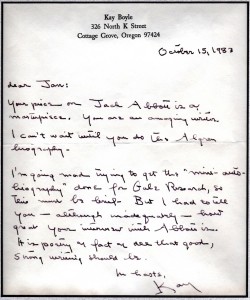 Kay Boyle
326 North K Street
Cottage Grove, Oregon 97424
October 15, 1983
dear Jan:
Your piece on Jack Abbott is a
masterpiece. You are an amazing writer.
I can't wait until you do the Algren
biography.
I'm going mad trying to get this "mini-auto-
biography" done for Gale Research, so
this must be brief. But I had to tell
you — although inadequately — how
great your interview with Abbott is.
It is poetry & fact & all that good,
strong writing should be.
In haste,
Kay